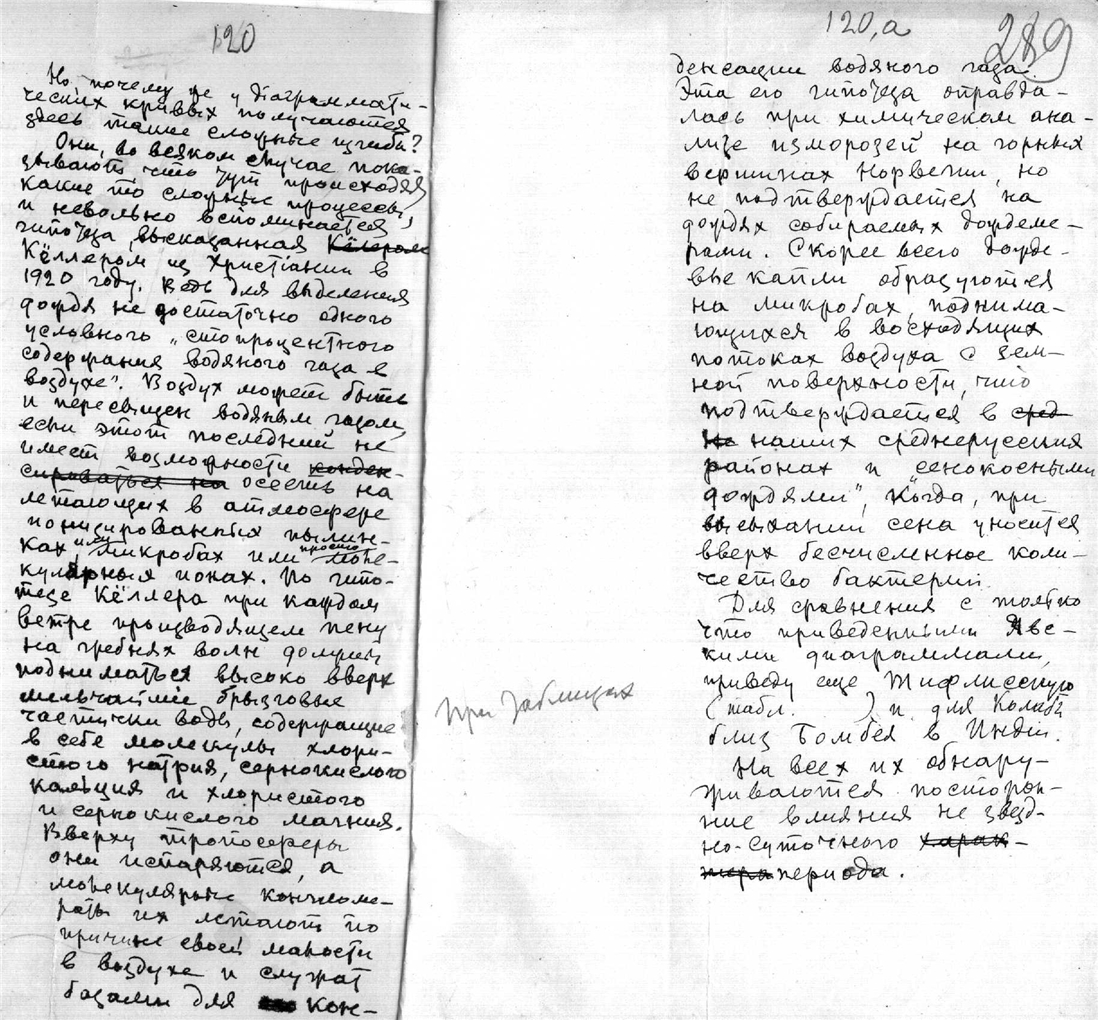 120
Но почему же у діаграмати-
ческих кривых получаются
здесь такие сложные изгибы?
Они, во всяком случае пока-
зывают что тут происходят
какие то сложные процессы,
и невольно вспоминается
гипотеза, высказанная Кёлером
Кёллером из Христіании в
1920 году. Ведь для выделения
дождя не достаточно одного
условного „стопроцентного
содержания водяного газа в
воздухе“. Воздух может быть
и пересыщен водяным газом,
если этот последний не
имеет возможности конден-
сироваться на осесть на
летающих в атмосфере
ионизированных пылин-
ках, или микробах или просто моле-
кулярных ионах. По гипо-
тезе Кёллера при каждом
ветре производящем пену
на гребнях волн должны
подниматься высоко вверх
мельчайшие брызговые
частички воды, содержащие
в себе молекулы хлори-
стого натрия, сернокислого
кальция и хлористого
и сернокислого магния.
Вверху тропосферы
они испаряются, а
молекулярные конгломе-
раты их летают по
причине своей малости
в воздухе и служат
базами для кон-
при таблицах
120,а
289
денсации водяного газа.
Эта его гипотеза оправда-
лась при химическом ана-
лизе изморозей на горных
вершинах Норвегии, но
не подтверждается на
дождях собираемых дождеме-
рами. Скорее всего дожде-
вые капли образуются
на микробах, поднима-
ющихся в восходящих
потоках воздуха с зем-
ной поверхности, что
подтверждается в сред
не наших среднерусских
районах и „сенокосными
дождями“, когда, при
высыхании сена уносится
вверх бесчисленное коли-
чество бактерий.
Для сравнения с только
что приведенными
кими диаграммами,
приведу еще Тифлисскую
(табл. ) и для Колабы
близ Бомбея в Индии.
На всех их обнару-
живаются посторон-
ние влияния не звезд-
но-суточного харак-
тера периода.